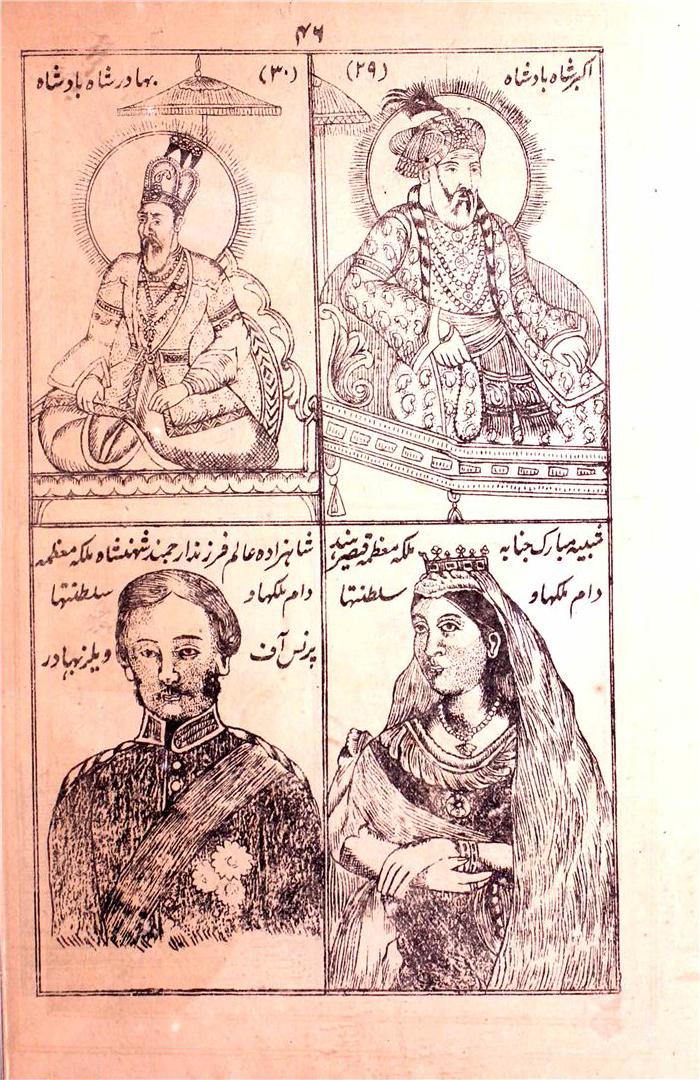 ۴۶
اکبر شاہ بادشاہ
(۲۹)
(۳۰)
بہادر شاہ بادشاہ
شبیہ مبارک جنابہ ملکہ معظمہ قیصر ہند
دام ملکہا و سلطنتہا
شاہزادہ عالم فرزند ارجمند شہنشاہ ملکہ معظمہ
دام ملکہا و سلطنتہا
پرنس آف ویلز بہادر